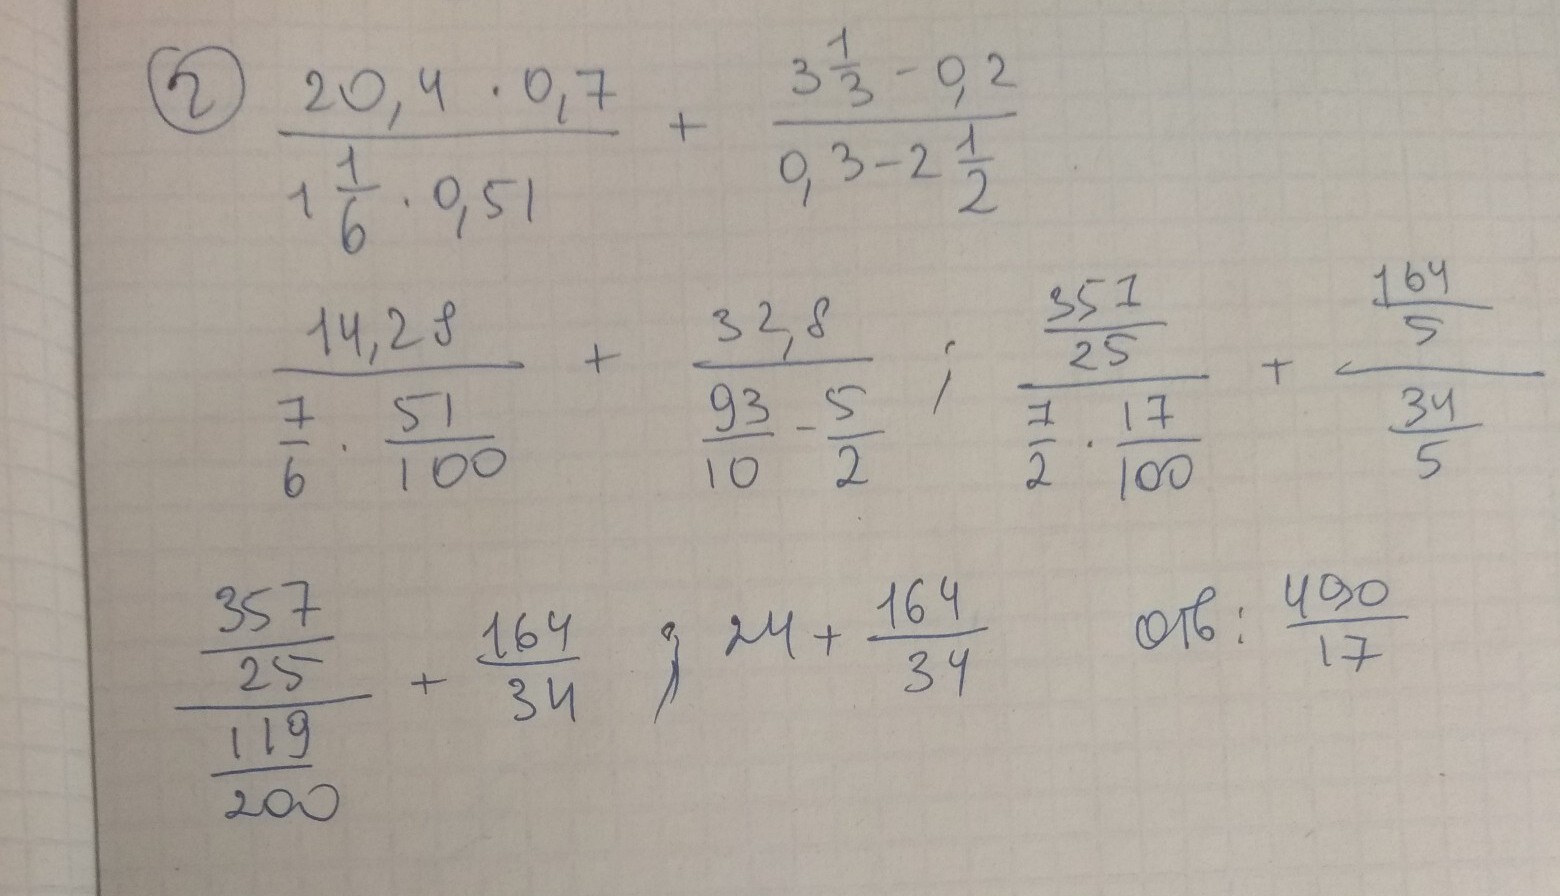 2 (20,4 · 0,7) / (1 1/6 · 0,51) + (3 1/3 - 0,2) / (0,3 - 2 1/2)
14,28 / (7/6 · 51/100) + 32,8 / (93/10 - 5/2) ; (357/25) / (7/2 · 17/100) + (164/5) / (34/5)
(357/25) / (119/200) + 164/34 ; 24 + 164/34 отв: 490/17